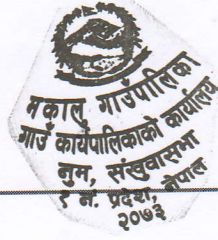 मकालु गाउँपालिका
गाउँ कार्यपालिकाको कार्यालय
नुम, संखुवासभा
१ नं. प्रदेश, नेपाल
२०७३